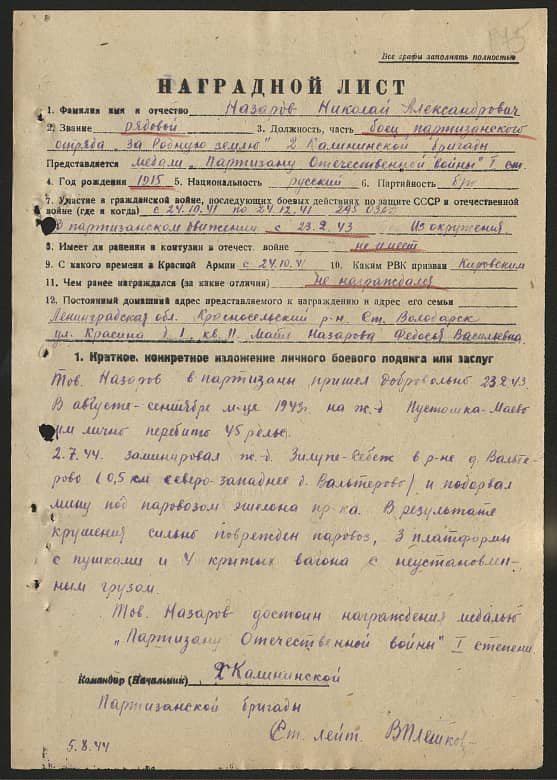 Все графы заполнять полностью
НАГРАДНОЙ ЛИСТ
1. Фамилия имя и отчество Назаров Николай Александрович
2. Звание рядовой 3. Должность, часть боец партизанского
отряда „За Родную землю" 2 Калининской бригады
Представляется медали „Партизану Отечественной войны" I ст.
4. Год рождения 1915 5. Национальность русский 6. Партийность б/п
7. Участие в гражданской войне, последующих боевых действиях по защите СССР и отечественной
войне (где и когда) с 24.10.41 по 24.12.41 245
В партизанском движении с 23.2.43 Из окружения.
8. Имеет ли ранения и контузии в отечест. войне не имеет
9. С какого времени в Красной Армии с 24.10.41 10. Каким РВК призван Кировским
11. Чем ранее награждался (за какие отличия) не награждался
12. Постоянный домашний адрес представляемого к награждению и адрес его семьи
Ленинградская обл. Красносельский р-н Ст. Володарск
ул. Красина д. 1, кв. 11. Мать Назарова Федосья Васильевна.
1. Краткое, конкретное изложение личного боевого подвига или заслуг
Тов. Назаров в партизаны пришел добровольно 23.2.43.
В августе-сентябре м-це 1943г. на ж-д Пустошка-Маево
им лично перебито 45 рельс.
2.7.44. заминировал ж-д. Зилупе-Себеж в р-не д. Вальте-
рово (0,5 км северо-западнее д. Вальтерово) и подорвал
мину под паровозом эшелона пр-ка. В результате
крушения сильно поврежден паровоз, 3 платформы
с пушками и 4 критых вагона с неустановлен-
ным грузом.
Тов. Назаров достоин награждения медалью
„Партизану Отечественной войны" I степени.
Командир (Начальник) Калининской
Партизанской бригады
Ст. лейт. ВПлешков
5.8.44